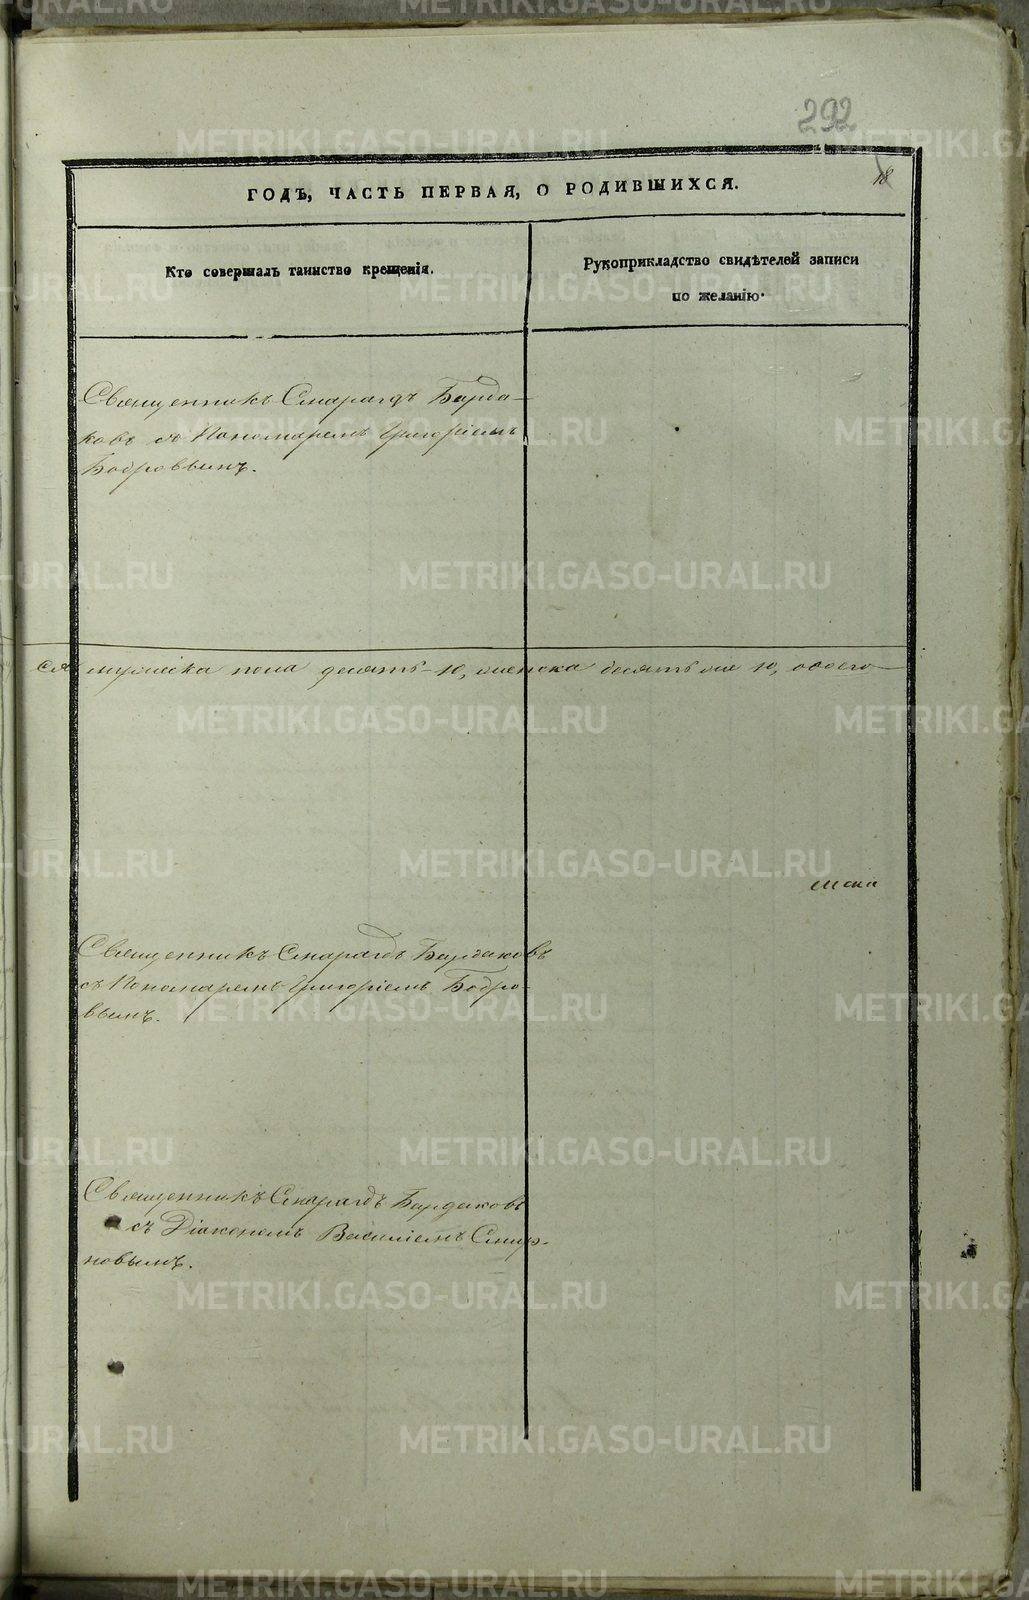 292
18
ГОДЪ, ЧАСТЬ ПЕРВАЯ, О РОДИВШИХСЯ.
Кто совершалъ таинство крещенія.
Рукоприкладство свидѣтелей записи
по желанію.
Священникъ Смарагдъ Барда-
ковъ съ Пономаремъ Григоріемъ
Бобровымъ.
ся мужеска пола десять 10, женска десять же 10, обоего
Священникъ Смарагдъ Бардаковъ
съ Пономаремъ Григоріемъ Бобро-
вымъ.
Священникъ Смарагдъ Бардаковъ
съ Діакономъ Василіемъ Смир-
новымъ.
METRIKI.GASO-URAL.RU